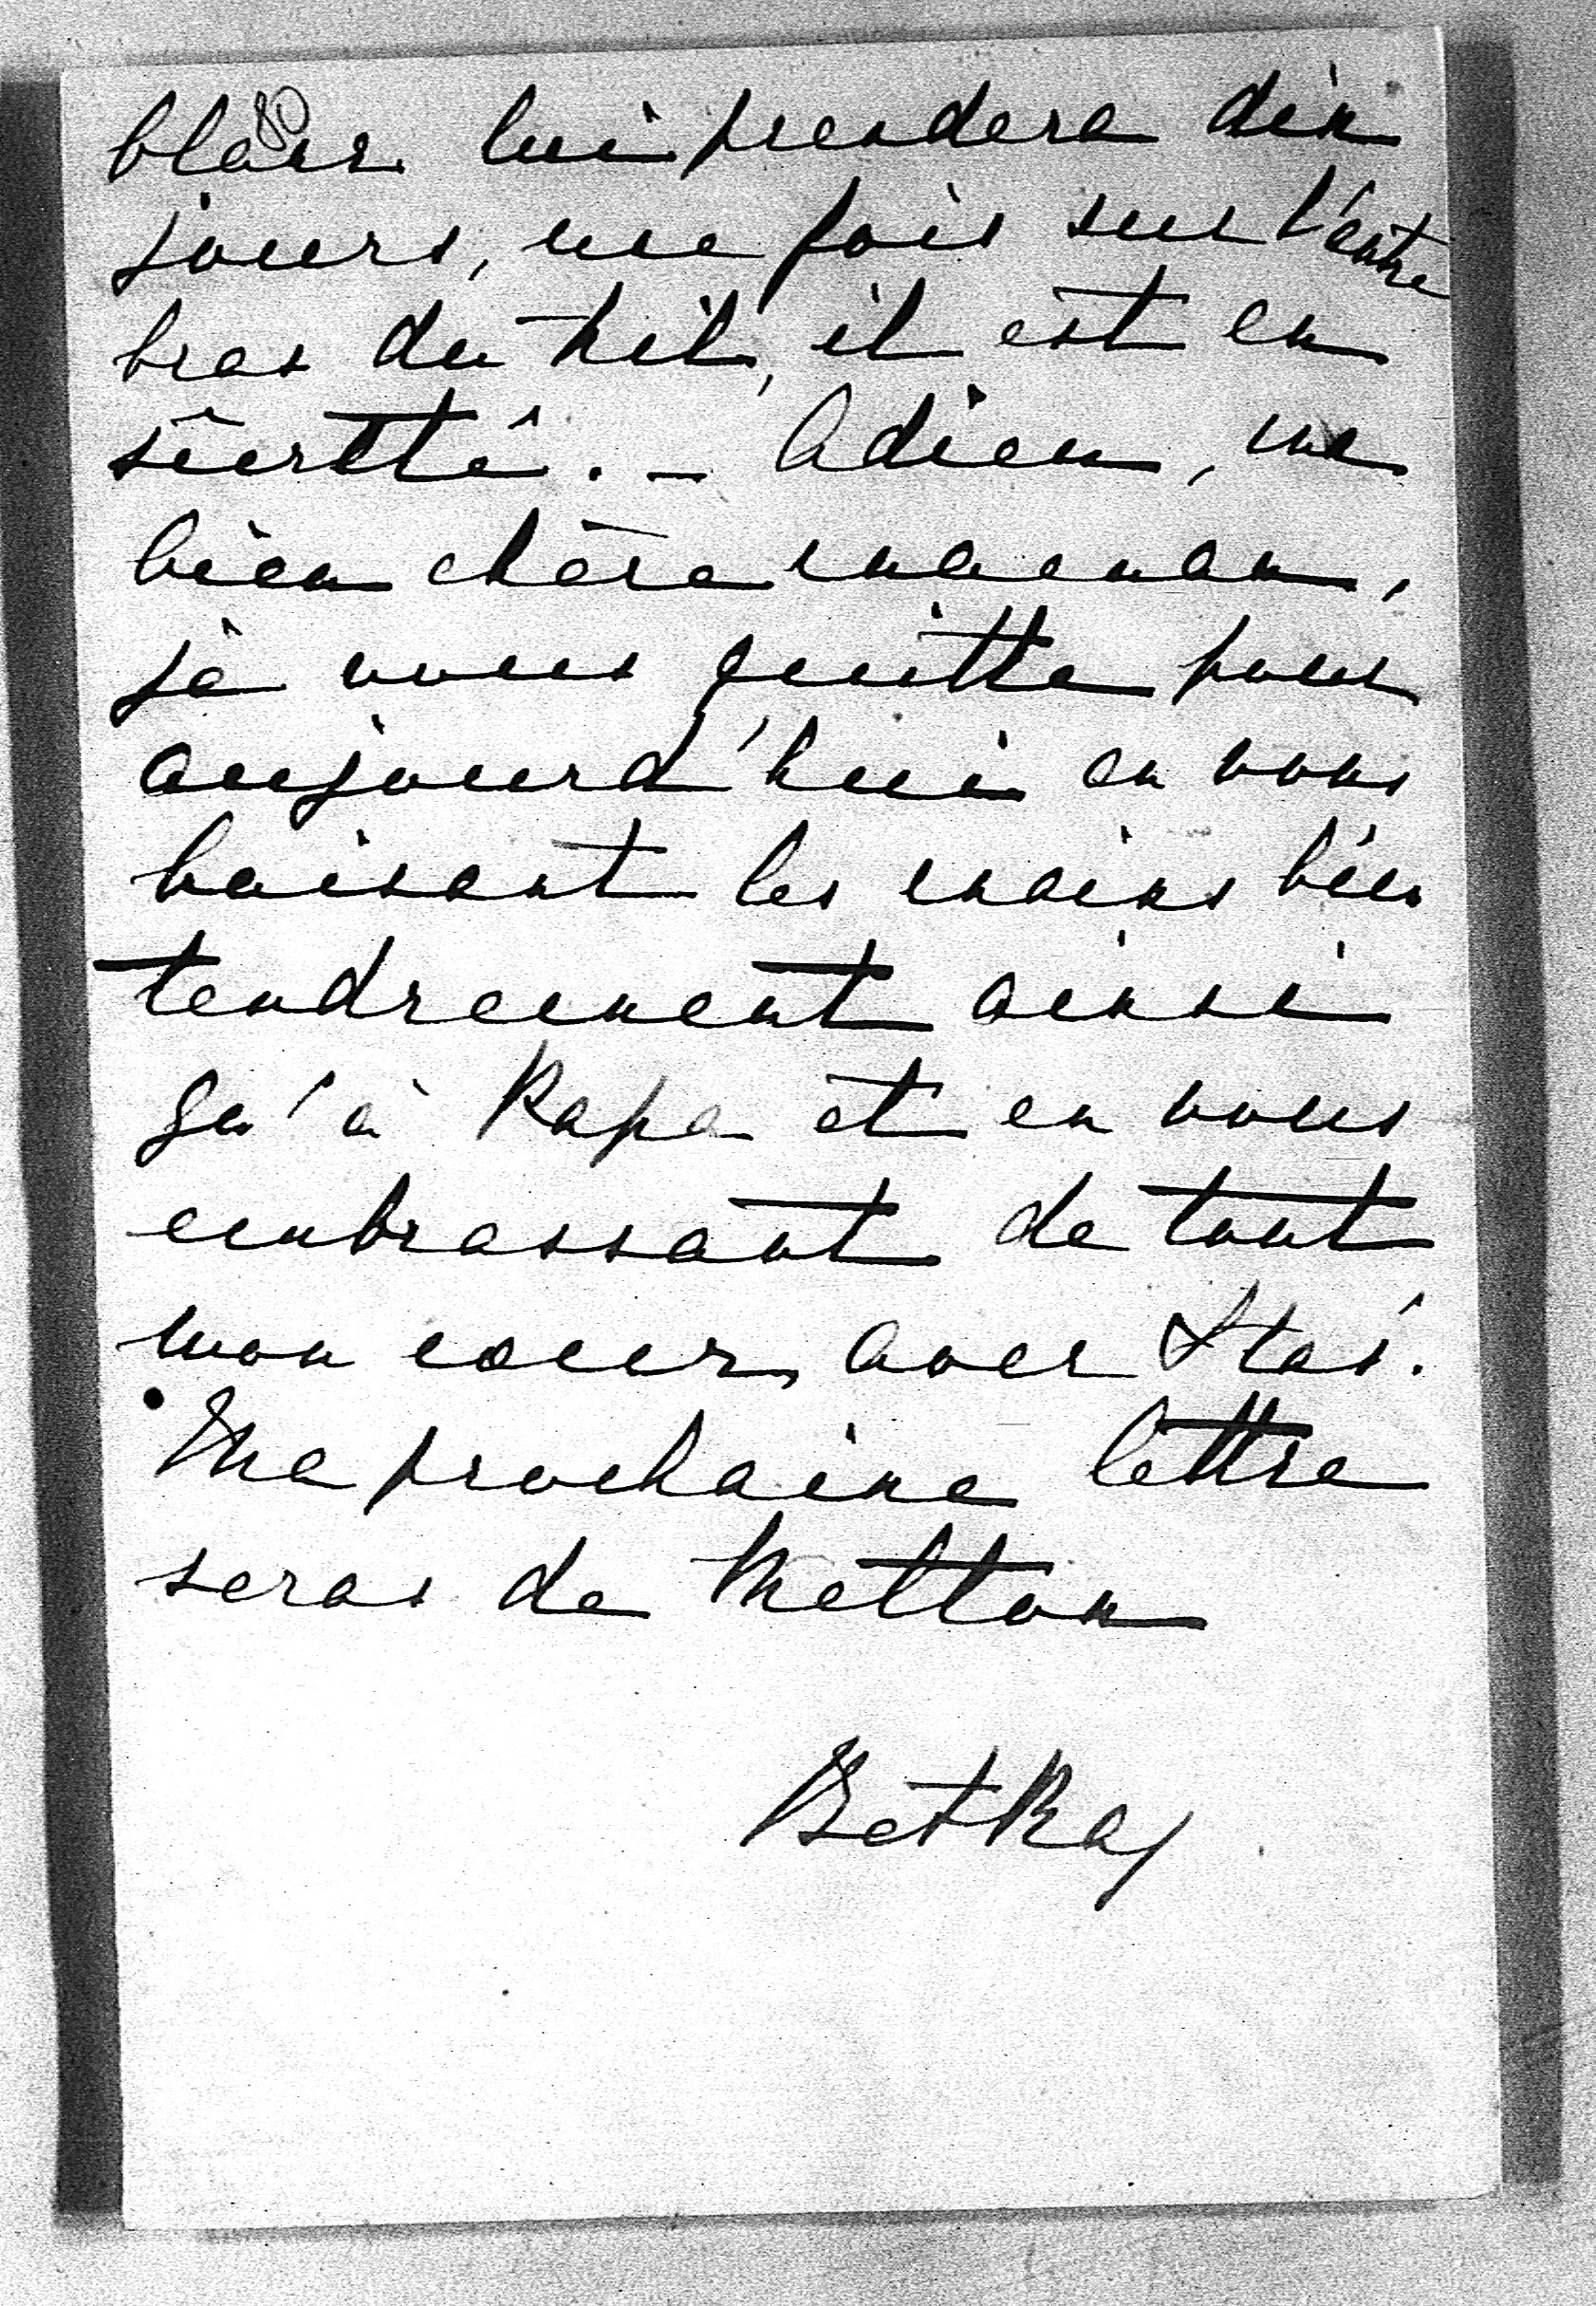 blair lui prendera dix
jours, une fois sur l'autre
bras du Nil, il est en
sûertté. – Adieu, ma
bien chère maman,
je vous quitte pour
aujourd'hui en vous
baisant les mains bien
tendrement ainsi
qu'à Papa et en vous
embrassant de tout
mon cœur, avec Stas.
Ma prochaine lettre
seras de Metton
Betka